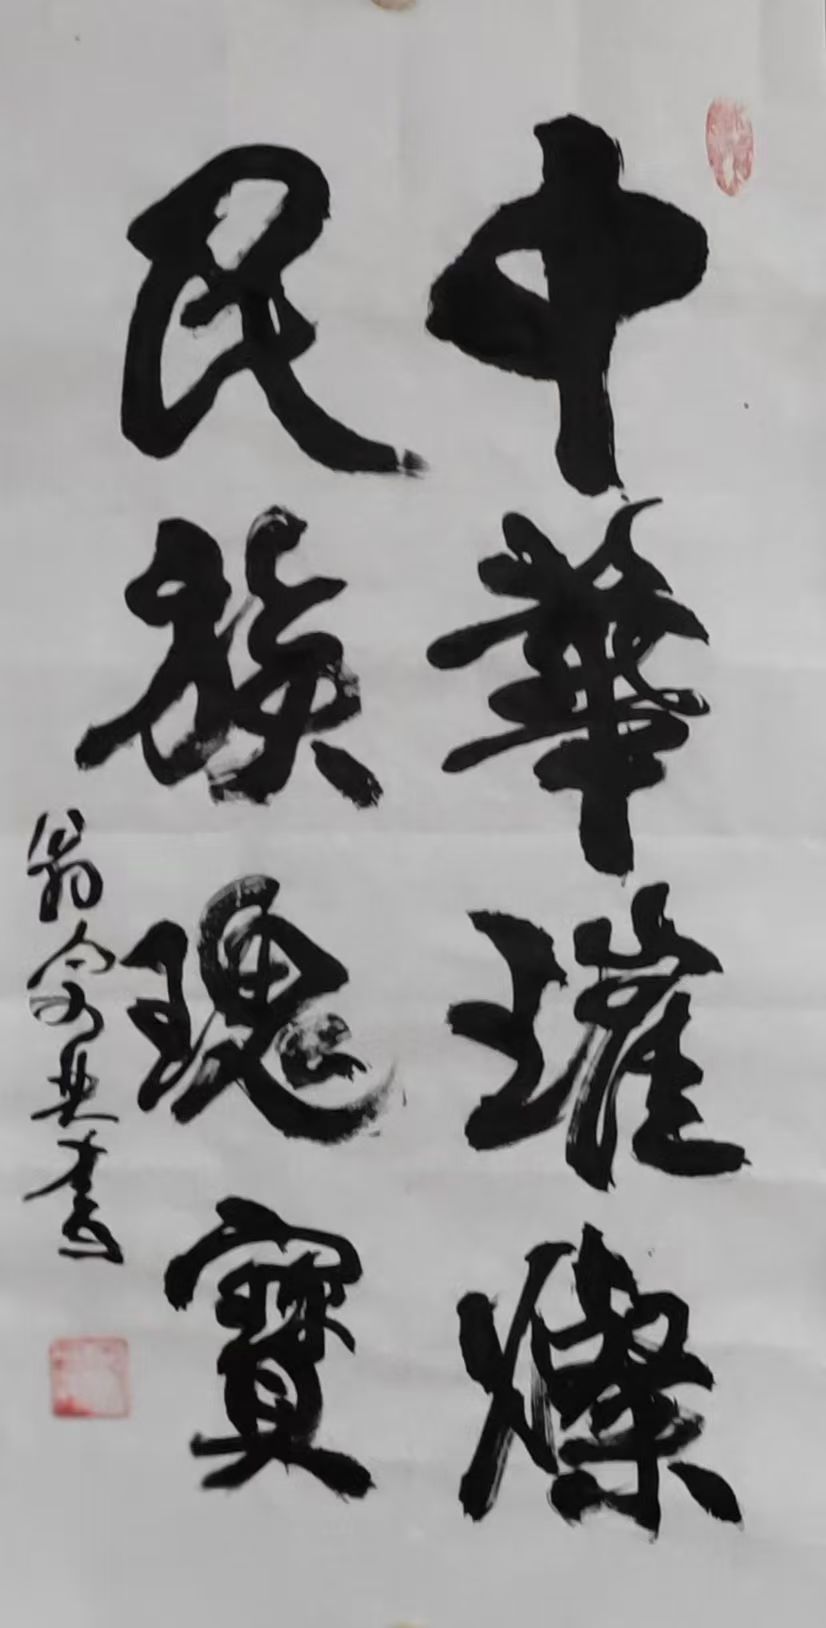 中華璀燦
民族瑰寶
翁
書